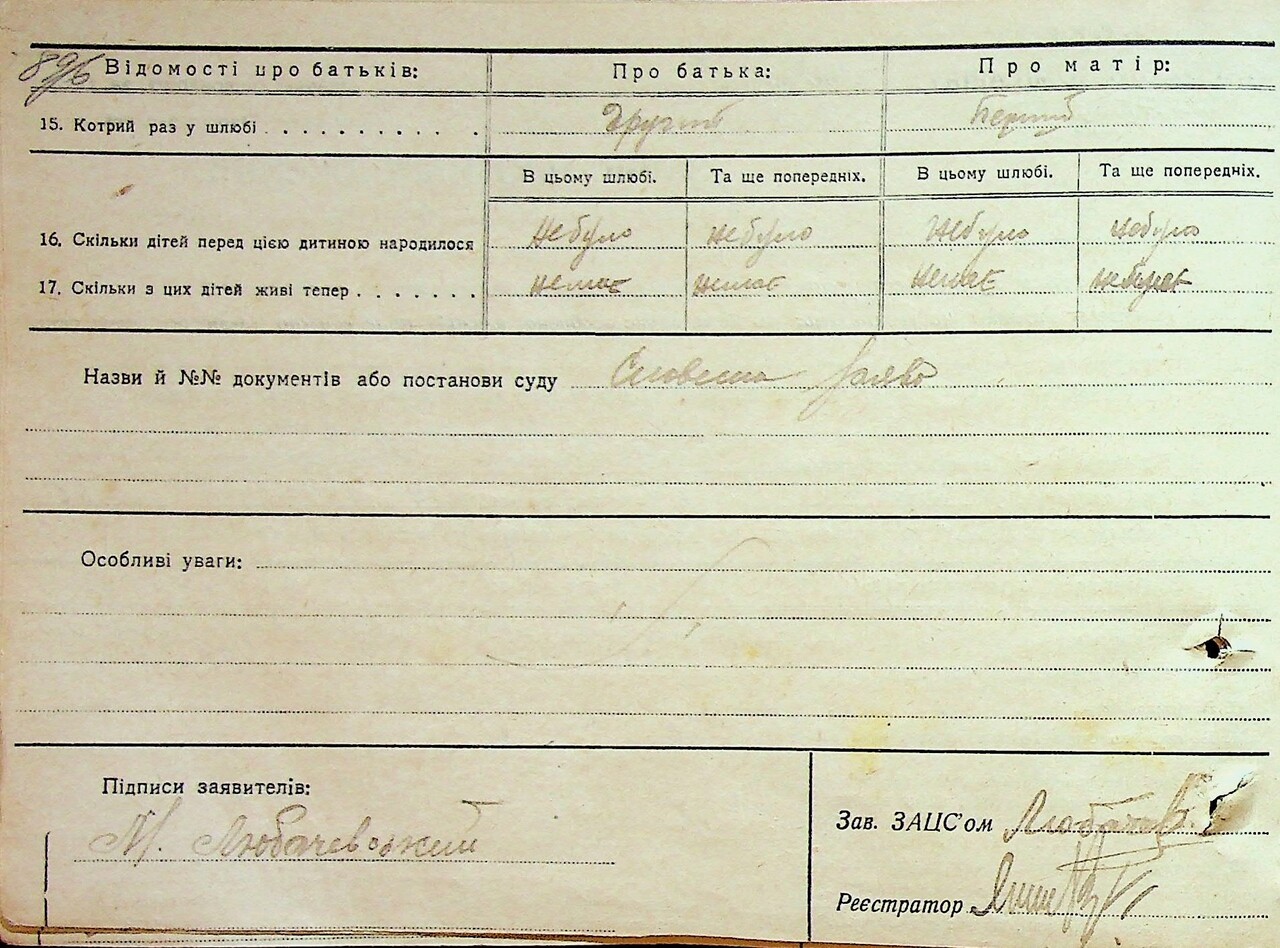 89б Відомості про батьків: Про батька: Про матір:
15. Котрий раз у шлюбі . . . . . . . . . . . Другий Перший
В цьому шлюбі. Та ще попередніх. В цьому шлюбі. Та ще попередніх.
16. Скільки дітей перед цією дитиною народилося небуло небуло небуло небуло
17. Скільки з цих дітей живі тепер . . . . . . . немає немає немає немає
Назви й №№ документів або постанови суду Словесна заява
Особливі уваги:
Підписи заявителів:
М. Любачевський
Зав. ЗАЦС'ом
Реєстратор